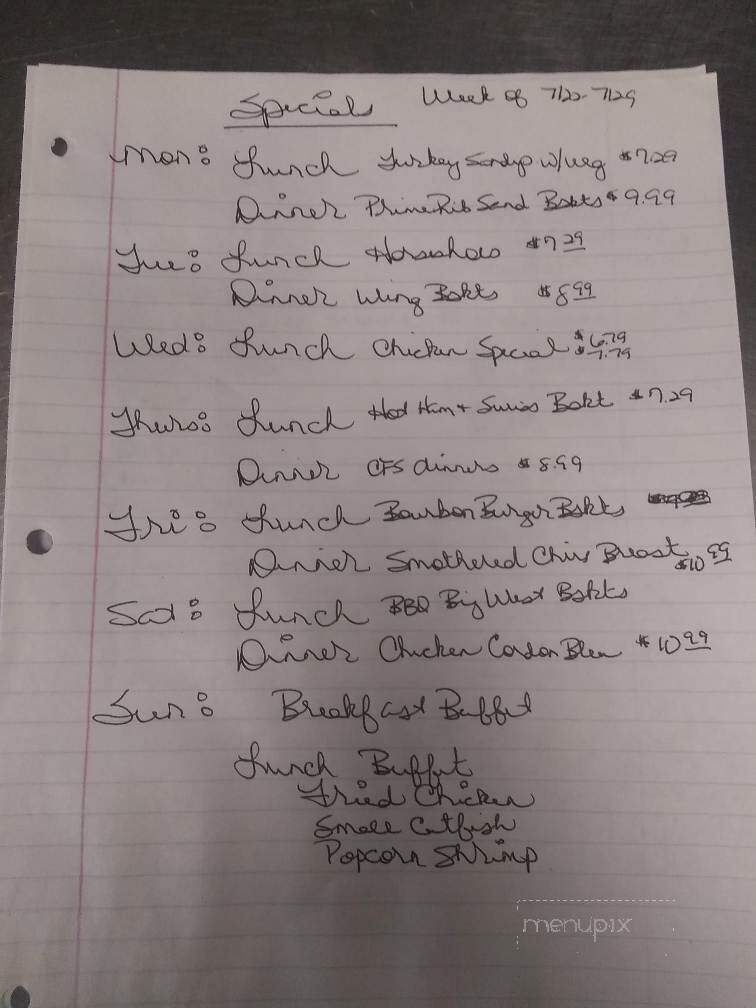 Specials Week of 7/22-7/29
Mon: Lunch Turkey Sandop w/veg $7.29
Dinner Prime Rib Sand Bskts $9.99
Tue: Lunch Horseshoes $7.29
Dinner Wing Bskts $8.99
Wed: Lunch Chicken Special $6.79
$7.79
Thurs: Lunch Hot Ham + Swiss Bskt $7.29
Dinner CFS dinners $8.99
Fri: Lunch Bourbon Burger Bskts
Dinner Smothered Chix Breast $10.99
Sat: Lunch BBQ Big West Bskts
Dinner Chicken Cordon Bleu $10.99
Sun: Breakfast Buffet
Lunch Buffet
Fried Chicken
Small Catfish
Popcorn Shrimp
menupix